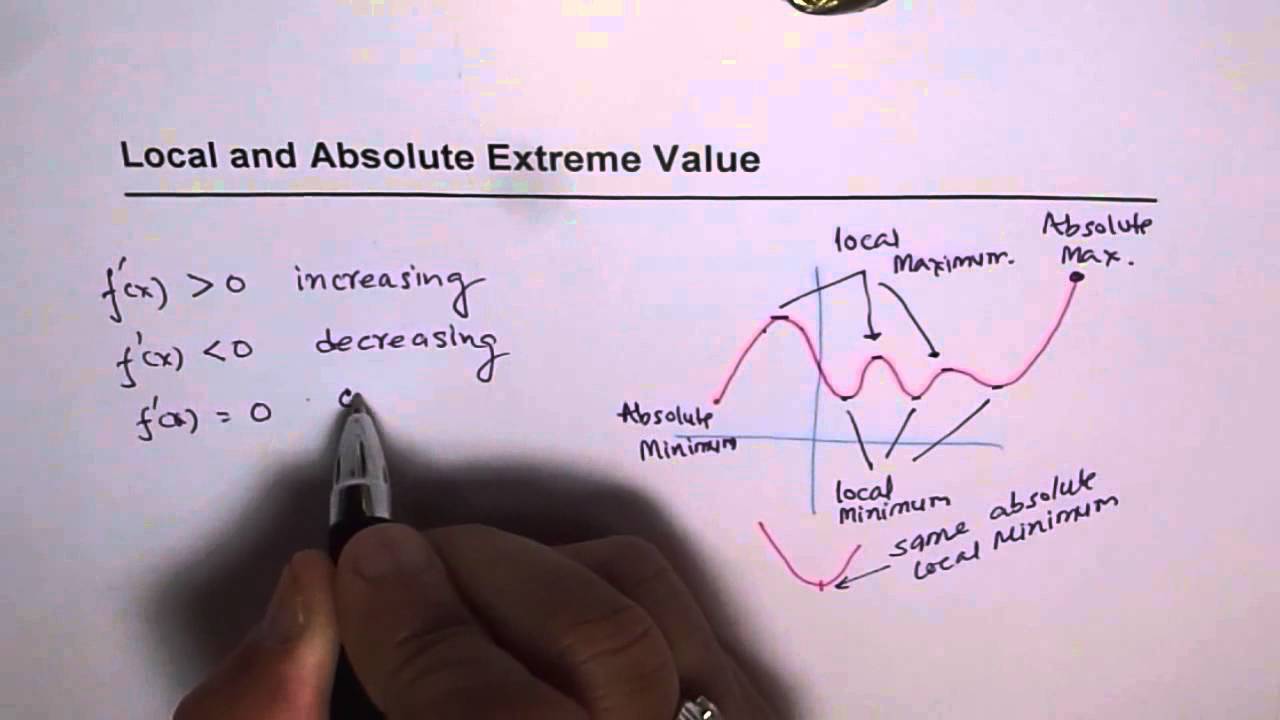 Local and Absolute Extreme Value
f'(x) > 0 increasing
f'(x) < 0 decreasing
f'(x) = 0
local
Maximum.
Absolute
Max.
Absolute
Minimum
local
Minimum
same absolute
local Minimum